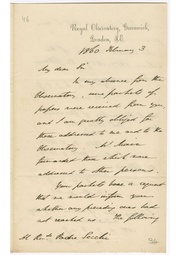 Royal Observatory, Greenwich,
London, S.E.
1860 February 3
My dear Sir
In my absence from the
Observatory, were packets of
papers were received from you and
I am greatly obliged for
those addressed to me and to the
Observatory. Mr
forwarded those which were
addressed to other persons.
Your packets have a request
that we would inform you
whether any preceding was had
not reached us. The following